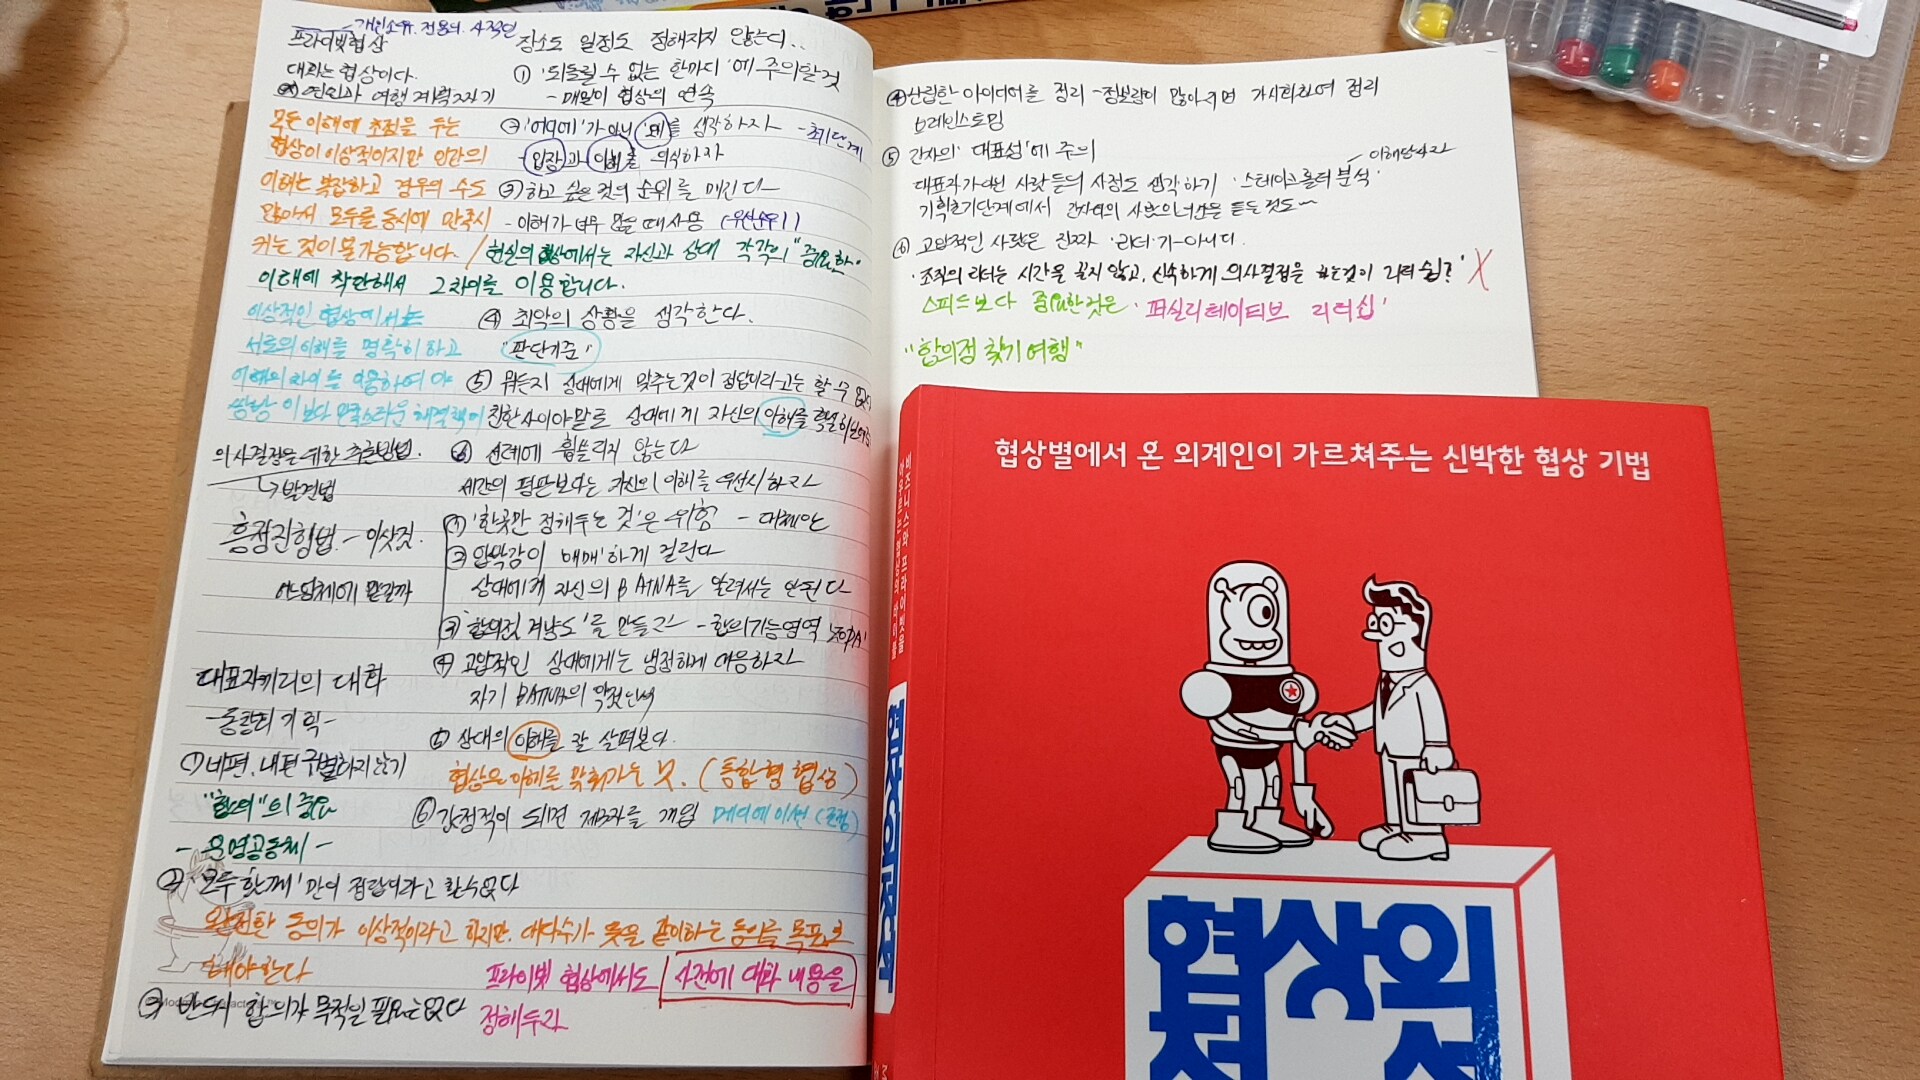 개인소유. 전용의. 사적인
프라이빗 협상
대화는 협상이다.
연인과 여행 계획짜기
모든 이해에 초점을 두는
협상이 이상적이지만 인간의
이해는 복잡하고 경우의 수도
많아서 모두를 동시에 만족시
커는 것이 불가능합니다. / 현실의 협상에서는 자신과 상대 각각의 "중요한"
이해에 착안해서 그 차이를 이용합니다.
이상적인 협상에서는
서로의 이해를 명확히 하고
이해의 차이를 이용하여
쌍방 이보다 만족스러운 해결책이
의사결정을 위한 추론방법.
발견법
흥정진형법 - 이삿짐.
어느업체에 맡길까
장소도 일정도 정해지지 않는다..
① '되돌릴 수 없는 한마디'에 주의할 것
- 매일이 협상의 연속
② '어디에'가 아닌 '왜'를 생각하자 - 초기단계
- 입장과 이해를 의식하자
③ 하고 싶은 것의 순위를 매긴다
- 이해가 너무 많을 때 사용 (우선순위)
④ 최악의 상황을 생각한다.
"판단기준"
⑤ 뭐든지 상대에게 맞추는 것이 정답이라고는 할 수 없다
친한 사이야말로 상대에게 자신의 이해를 확실히
⑥ 선례에 휩쓸리지 않는다
세간의 평판보다는 자신의 이해를 우선시하자
① '한곳만 정해두는 것'은 위험 - 대체안
② 압박감이 '애매'하게 걸린다
상대에게 자신의 BATNA를 알려서는 안된다
③ '합의점 겨냥도'를 만들고 - 합의가능영역 'ZOPA'
④ 고압적인 상대에게는 냉정하게 대응하자
자기 BATNA의 약점인식
⑤ 상대의 이해를 잘 살펴본다.
협상은 이해를 맞춰가는 것. (통합형 협상)
⑥ 감정적이 되면 제3자를 개입 메디에이션 (조정)
대표자끼리의 대화
- 동창회 기획 -
① 네편, 내편 구별하지 않기
"합의"의 중요
- 운명공동체 -
② '모두 함께'만이 정답이라고 할 수 없다
완전한 동의가 이상적이라고 하지만, 대다수가 뜻을 같이하는 동의를 목표로
해야한다
③ 반드시 합의가 목적일 필요는 없다
프라이빗 협상에서도 사전에 대화 내용을
정해두라
④ 난립한 아이디어를 정리 - 정보량이 많아지면 가시화하여 정리
브레인스토밍
⑤ 간사의 '대표성'에 주의
이해당사자
대표자가 아닌 사람들의 사정도 생각하기 '스테이크홀더 분석'
기획초기단계에서 간사의 사람의 들은 것도~
⑥ 고압적인 사람은 진짜 '리더'가 아니다.
'조직의 리더는 시간을 끌지 않고, 신속하게 의사결정을 하는것이 리더쉽?' X
스피드보다 중요한것은 '퍼실리테이티브 리더십'
"합의점 찾기 여행"
협상별에서 온 외계인이 가르쳐주는 신박한 협상 기법
비즈니스와 프라이빗을
협상의 정석
협상의